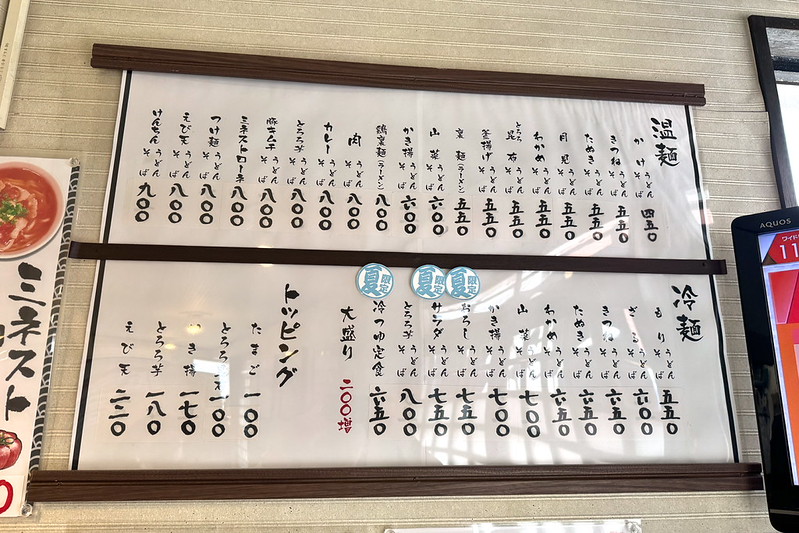 温麺
かけ うどん そば 四五〇
きつね うどん そば 五五〇
たぬき うどん そば 五五〇
月見 うどん そば 五五〇
わかめ うどん そば 五五〇
とろろ昆布 うどん そば 五五〇
釜揚げ うどん そば 五五〇
窯麺(ラーメン) 五五〇
山菜 うどん そば 六〇〇
かき揚 うどん そば 六〇〇
鶏窯麺(ラーメン) 八〇〇
肉 うどん そば 八〇〇
カレー うどん そば 八〇〇
とろろ芋 うどん そば 八〇〇
豚キムチ うどん そば 八〇〇
ミネストローネ 八〇〇
つけ麺 うどん そば 八〇〇
えび天 うどん そば 八〇〇
けんちん うどん そば 九〇〇
冷麺
もり うどん そば 五五〇
ざる うどん そば 六〇〇
きつね うどん そば 六五〇
たぬき うどん そば 六五〇
わかめ うどん そば 六五〇
山菜 うどん そば 七〇〇
かき揚 うどん そば 七〇〇
夏限定 おろし うどん そば 七五〇
夏限定 サラダ うどん そば 七五〇
とろろ芋 うどん そば 八〇〇
夏限定 冷つゆ定食 六五〇
大盛り 二〇〇増
トッピング
たまご 一〇〇
とろろ 一〇〇
かき揚 一七〇
とろろ芋 一八〇
えび天 二二〇
ミネスト
AQUOS
ワイド
11